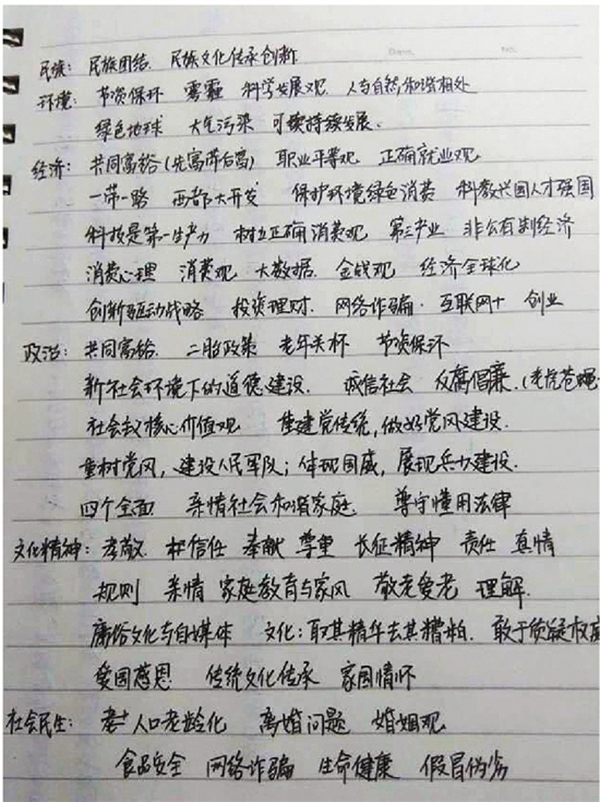 民族：民族团结 民族文化传承创新
环境：节资保环 雾霾 科学发展观 人与自然和谐相处
绿色地球 大气污染 可持续发展.
经济：共同富裕(先富带后富) 职业平等观 正确就业观
一带一路 西部大开发 保护环境绿色消费 科教兴国人才强国
科技是第一生产力 树立正确消费观 第三产业 非公有制经济
消费心理 消费观 大数据 金钱观 经济全球化
创新驱动战略 投资理财 网络诈骗. 互联网+ 创业
政治：共同富裕. 二胎政策 老年关怀 节资保环
新社会环境下的道德建设. 诚信社会 反腐倡廉.(老虎苍蝇
社会主义核心价值观 重建党传统,做好党风建设.
重树党风,建设人民军队;体现国威,展现兵力建设.
四个全面 亲情社会和谐家庭. 尊守懂用法律
文化精神：孝敬. 相信任 奉献 尊重 长征精神 责任 真情
规则 亲情 家庭教育与家风 敬老爱老 理解.
庸俗文化与自媒体 文化:取其精华去其糟粕. 敢于质疑权威
爱国感恩 传统文化传承 家国情怀
社会民生： 人口老龄化 离婚问题 婚姻观
食品安全 网络诈骗 生命健康 假冒伪劣